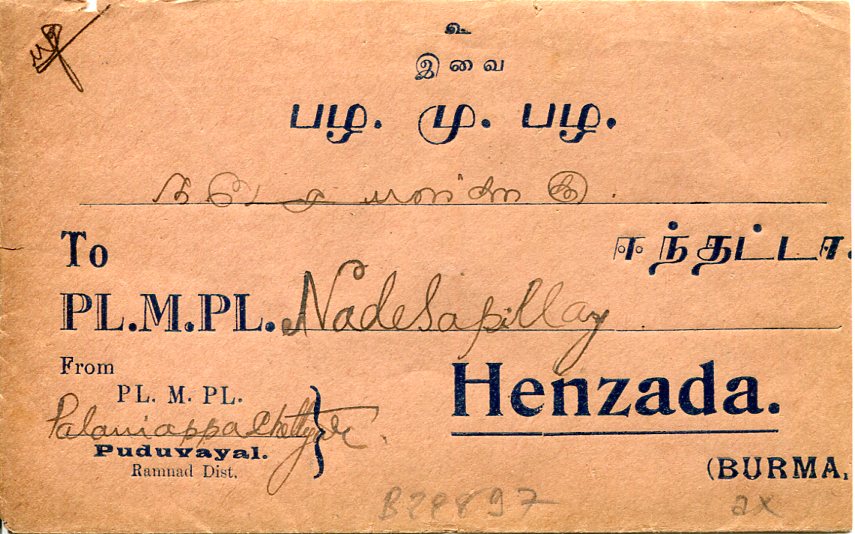 உ
இவை
பழ. மு. பழ.
ஈந்தட்டா.
To
PL.M.PL. Nadesapillay
From
PL. M. PL.
Palaniappa Chettyar.
Puduvayal.
Ramnad Dist.
Henzada.
(BURMA,
ax